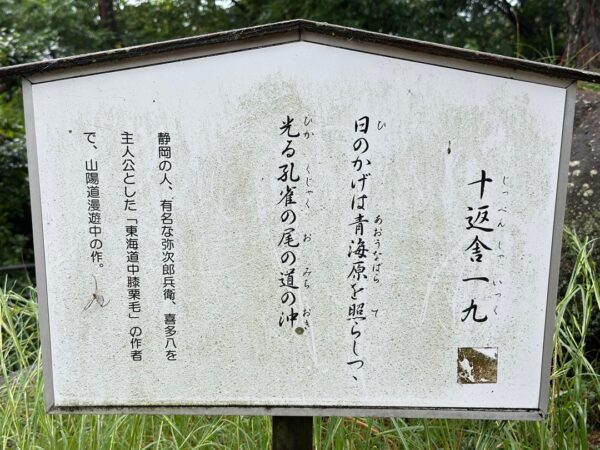 十返舎一九
じっぺんしゃ いっく
日のかげは青海原を照らしつゝ
ひ あおうなばら て
光る孔雀の尾の道の沖
ひか くじゃく お みち おき
静岡の人、有名な弥次郎兵衛、喜多八を
主人公とした「東海道中膝栗毛」の作者
で、山陽道漫遊中の作。